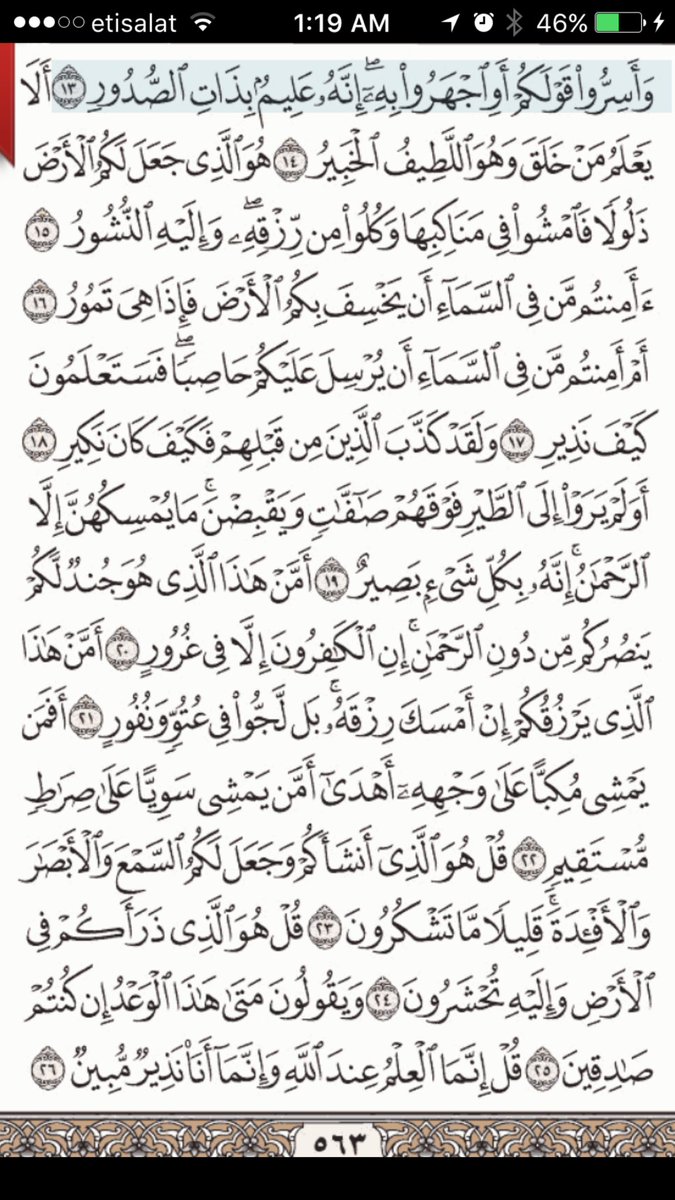 etisalat 1:19 AM 46%
وَأَسِرُّوا۟ قَوْلَكُمْ أَوِ ٱجْهَرُوا۟ بِهِۦٓ ۖ إِنَّهُۥ عَلِيمٌۢ بِذَاتِ ٱلصُّدُورِ ١٣ أَلَا
يَعْلَمُ مَنْ خَلَقَ وَهُوَ ٱللَّطِيفُ ٱلْخَبِيرُ ١٤ هُوَ ٱلَّذِى جَعَلَ لَكُمُ ٱلْأَرْضَ
ذَلُولًا فَٱمْشُوا۟ فِى مَنَاكِبِهَا وَكُلُوا۟ مِن رِّزْقِهِۦ ۖ وَإِلَيْهِ ٱلنُّشُورُ ١٥
ءَأَمِنتُم مَّن فِى ٱلسَّمَآءِ أَن يَخْسِفَ بِكُمُ ٱلْأَرْضَ فَإِذَا هِىَ تَمُورُ ١٦
أَمْ أَمِنتُم مَّن فِى ٱلسَّمَآءِ أَن يُرْسِلَ عَلَيْكُمْ حَاصِبًا ۖ فَسَتَعْلَمُونَ
كَيْفَ نَذِيرِ ١٧ وَلَقَدْ كَذَّبَ ٱلَّذِينَ مِن قَبْلِهِمْ فَكَيْفَ كَانَ نَكِيرِ ١٨
أَوَلَمْ يَرَوْا۟ إِلَى ٱلطَّيْرِ فَوْقَهُمْ صَـٰٓفَّـٰتٍ وَيَقْبِضْنَ ۚ مَا يُمْسِكُهُنَّ إِلَّا
ٱلرَّحْمَـٰنُ ۚ إِنَّهُۥ بِكُلِّ شَىْءٍۭ بَصِيرٌ ١٩ أَمَّنْ هَـٰذَا ٱلَّذِى هُوَ جُندٌ لَّكُمْ
يَنصُرُكُم مِّن دُونِ ٱلرَّحْمَـٰنِ ۚ إِنِ ٱلْكَـٰفِرُونَ إِلَّا فِى غُرُورٍ ٢٠ أَمَّنْ هَـٰذَا
ٱلَّذِى يَرْزُقُكُمْ إِنْ أَمْسَكَ رِزْقَهُۥ ۚ بَل لَّجُّوا۟ فِى عُتُوٍّ وَنُفُورٍ ٢١ أَفَمَن
يَمْشِى مُكِبًّا عَلَىٰ وَجْهِهِۦٓ أَهْدَىٰٓ أَمَّن يَمْشِى سَوِيًّا عَلَىٰ صِرَٰطٍ
مُّسْتَقِيمٍ ٢٢ قُلْ هُوَ ٱلَّذِىٓ أَنشَأَكُمْ وَجَعَلَ لَكُمُ ٱلسَّمْعَ وَٱلْأَبْصَـٰرَ
وَٱلْأَفْـِٔدَةَ ۖ قَلِيلًا مَّا تَشْكُرُونَ ٢٣ قُلْ هُوَ ٱلَّذِى ذَرَأَكُمْ فِى
ٱلْأَرْضِ وَإِلَيْهِ تُحْشَرُونَ ٢٤ وَيَقُولُونَ مَتَىٰ هَـٰذَا ٱلْوَعْدُ إِن كُنتُمْ
صَـٰدِقِينَ ٢٥ قُلْ إِنَّمَا ٱلْعِلْمُ عِندَ ٱللَّهِ وَإِنَّمَآ أَنَا۠ نَذِيرٌ مُّبِينٌ ٢٦
٥٦٣